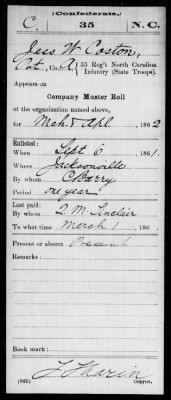 (Confederate.)
C. 35 N. C.
Jess W Coston,
Pvt, Co. A, 35 Reg't North Carolina
Infantry (State Troops).
Appears on
Company Muster Roll
of the organization named above,
for Mch & Apl, 1862
Enlisted:
When Sept 6, 1861.
Where Jacksonville
By whom C Barry
Period one year
Last paid:
By whom Q. M. Sinclair
To what time March 1, 186 .
Present or absent Present
Remarks:
Book mark:
(642) Copyist.